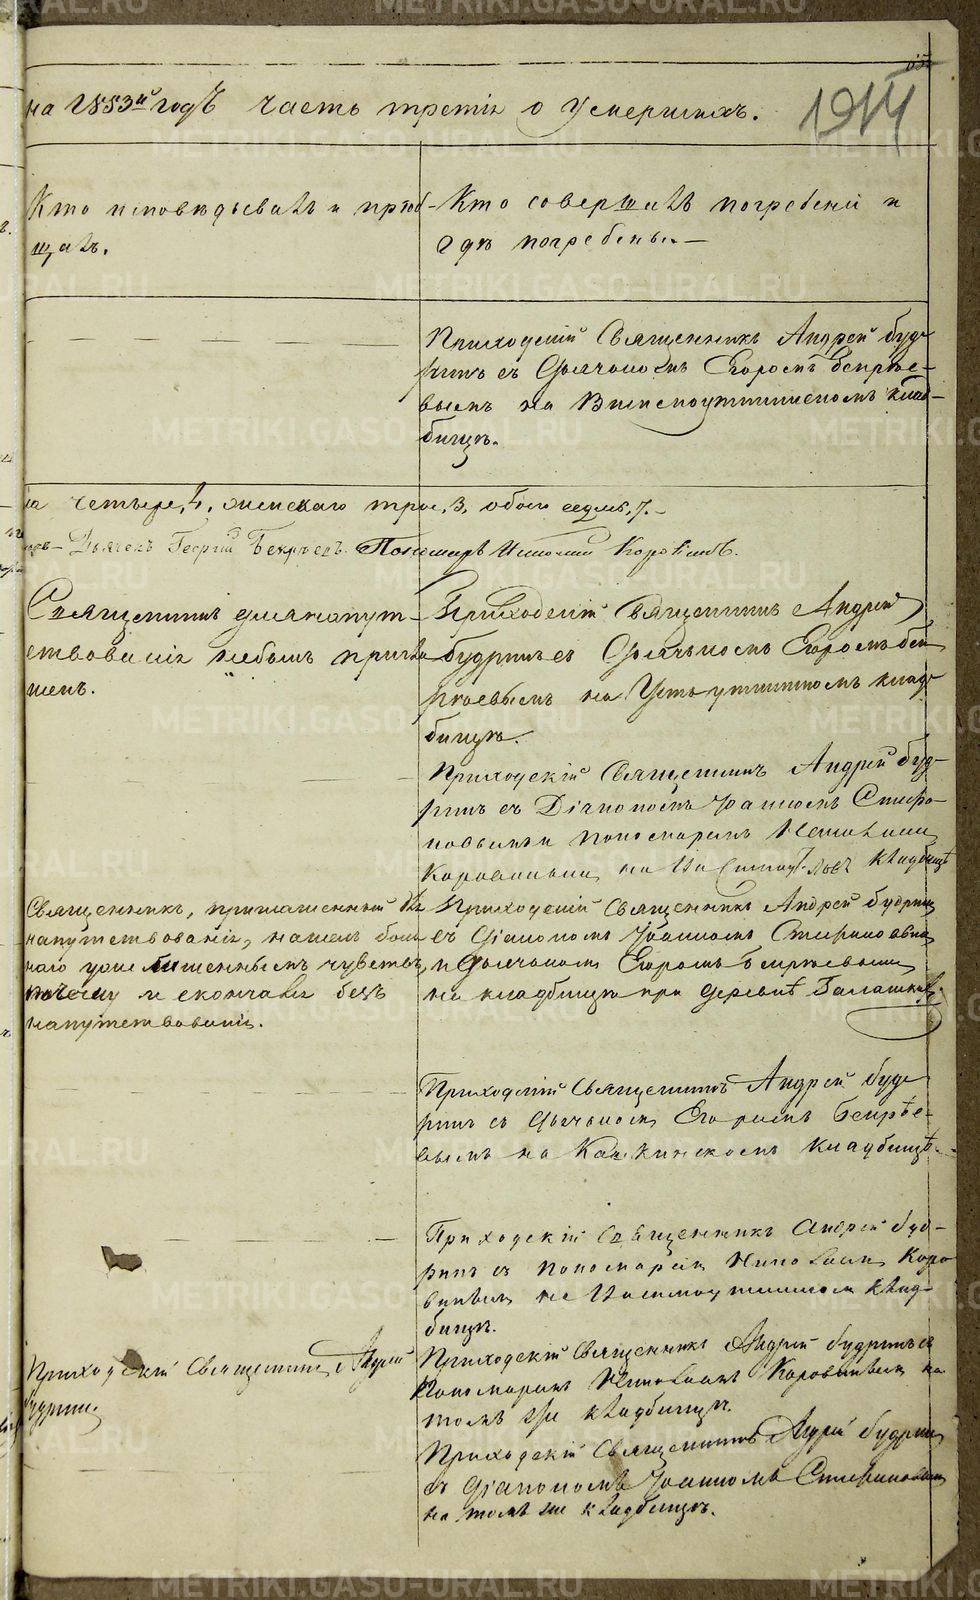 на 1883й годъ часть третiя о умершихъ.
1914
Кто исповѣдывалъ и прiоб-
щалъ.
Кто совершалъ погребенiе и
гдѣ погребены.—
Приходскiй Священникъ Андрей Буд-
ринъ съ Дьячкомъ Егоромъ Бекрѣе-
вымъ на клад-
бищѣ.
четыре, 4, женскаго трое, 3, обоего седмь, 7.—
Дьячекъ Георгiй Бекрѣевъ. Пономарь Николай Коровинъ.
Священникъ для напут-
ствованiя небылъ пригла-
шенъ.
Приходскiй Священникъ Андрей
Будринъ съ Дьячкомъ Егоромъ Бек-
рѣевымъ на Усть-уткинскомъ клад-
бищѣ.
Приходскiй Священникъ Андрей Буд-
ринъ съ Дiакономъ Iоанномъ
и пономаремъ Николаемъ
Коровинымъ на кладбищѣ
Священникъ, приглашенный къ
напутствованiю, нашелъ боль-
наго уже лишеннымъ чувствъ,
почему и скончался безъ
напутствованiя.
Приходскiй Священникъ Андрей Будринъ
съ Дiакономъ Iоанномъ
и Дьячкомъ Егоромъ Бекрѣевымъ
на кладбищѣ при деревнѣ Галашкахъ.
Приходскiй Священникъ Андрей Буд-
ринъ съ Дьячкомъ Егоромъ Бекрѣе-
вымъ на Кашкинскомъ Кладбищѣ.
Приходскiй Священникъ Андрей Буд-
ринъ съ пономаремъ Николаемъ Коро-
винымъ на клад-
бищѣ.
Приходскiй Священникъ Андрей
Будринъ
Приходскiй Священникъ Андрей Будринъ съ
Пономаремъ Николаемъ Коровинымъ на
томъ же кладбищѣ.
Приходскiй Священникъ Андрей Будринъ
съ Дiакономъ Iоанномъ
на томъ же кладбищѣ.
METRIKI.GASO-URAL.RU